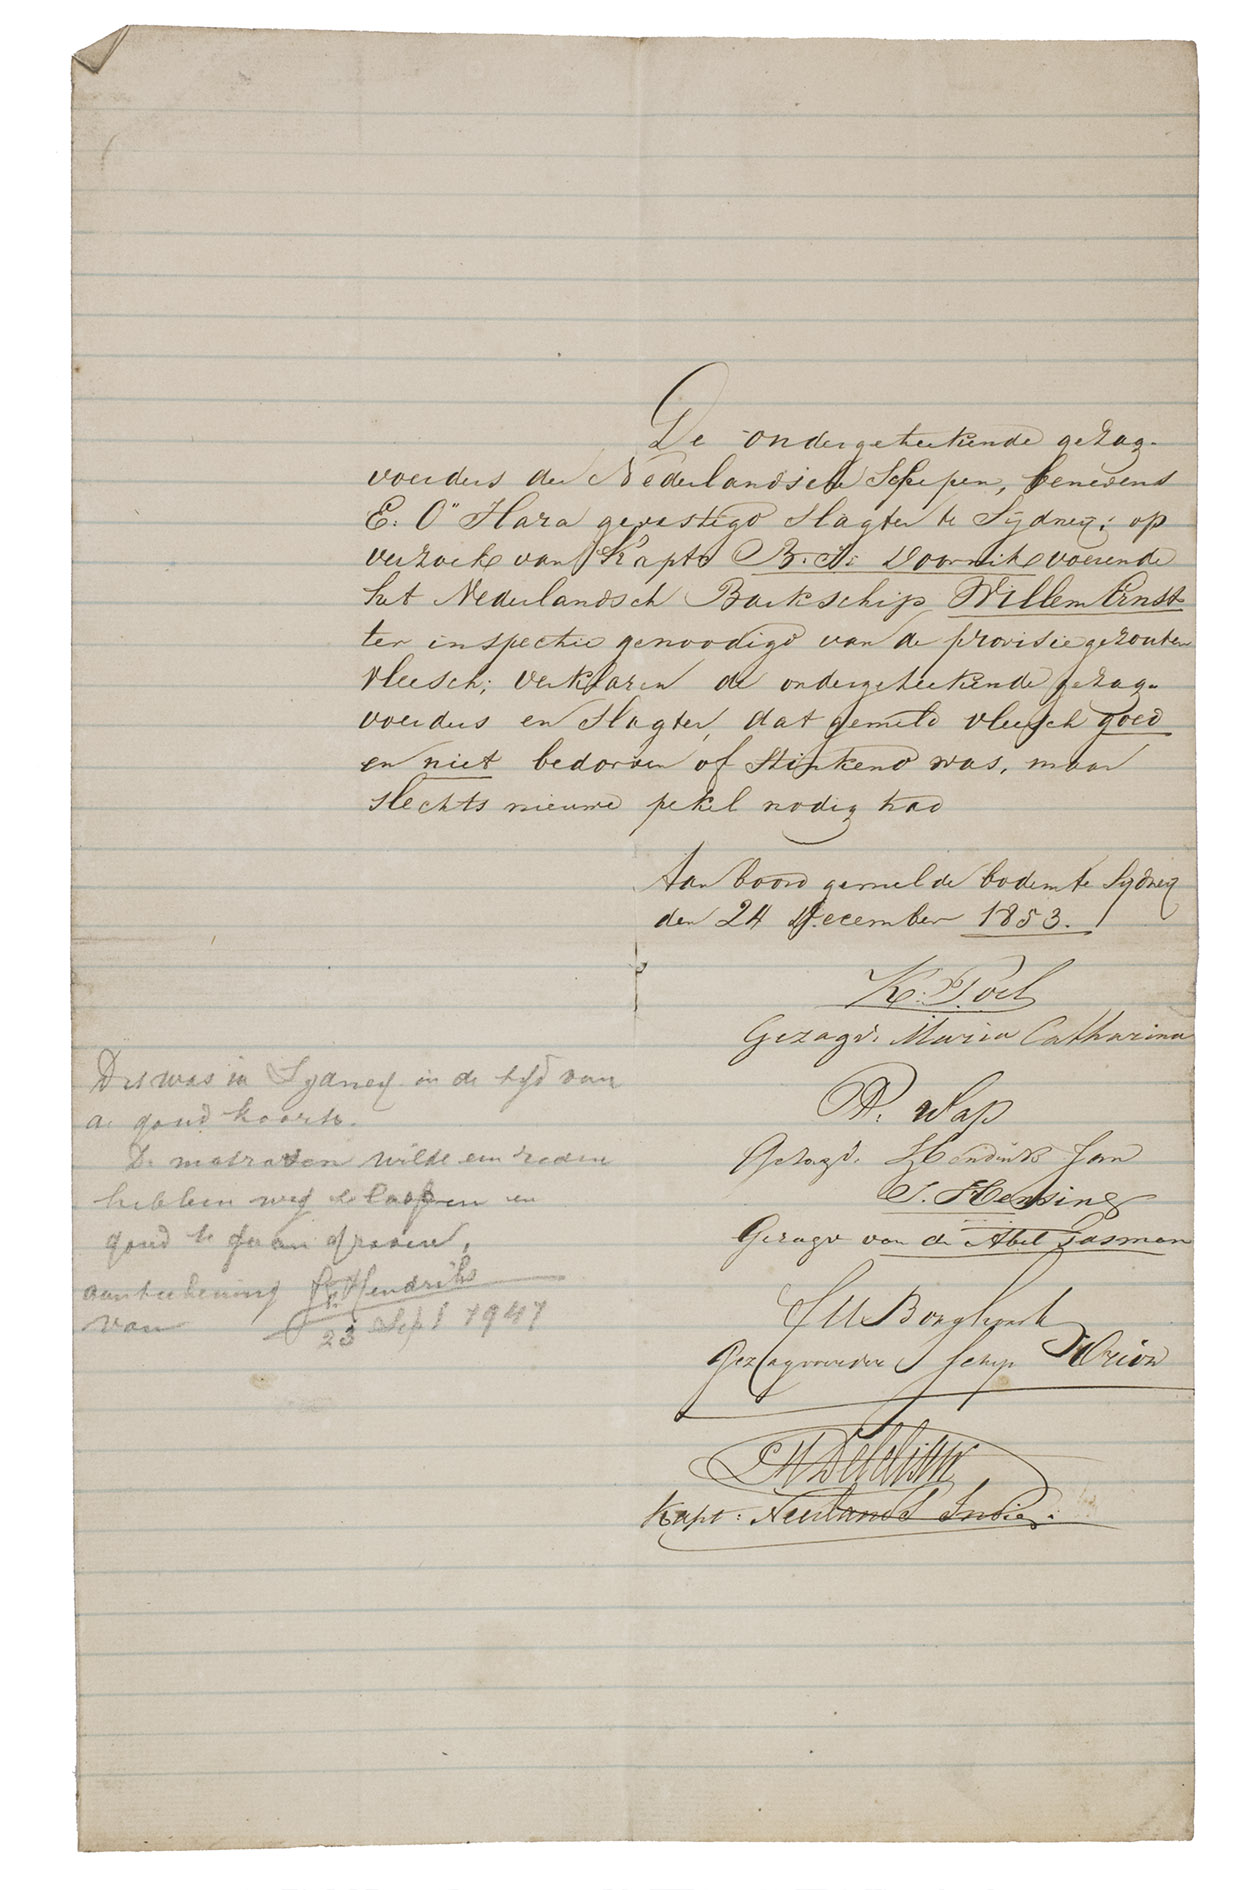 De ondergeteekende gezag-
voerders der Nederlandsche Schepen, benevens
E. O" Hara gevestigd Slagter te Sydney; op
verzoek van Kaptn B. J. Doornik voerende
het Nederlandsch Barkschip Willem Ernst
ter inspectie genoodigd van de provisie gezouten
vleesch; verklaren de ondergeteekende gezag-
voerders en Slagter, dat gemeld vleesch goed
en niet bedorven of stinkend was, maar
slechts nieuwe pekel nodig had
Aan boord gemelde bodem te Sydney
den 24 December 1853.
K. Poel
Gezagv. Maria Catharina
P. Wap
Gezagv. Hendrik Jan
J. Hensing
Gezagv van de Abel Tasman
Gezagvoerder Schip Orion
Kapt: Neerlands Indie.
Dit was in Sydney in de tijd van
de goud koorts.
De matrozen wilde een reden
hebben weg te loopen en
goud te gaan graven,
aanteekening Hendriks
van 23 Sept 1947